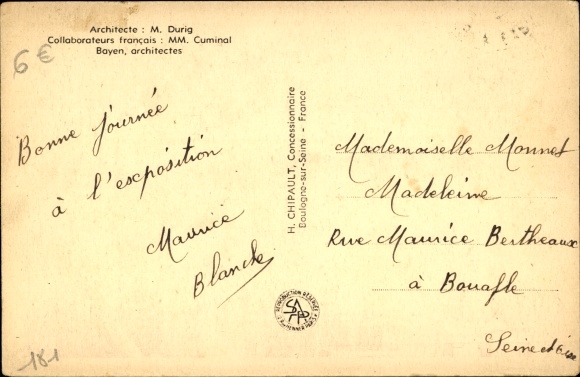 Architecte : M. Durig
Collaborateurs français : MM. Cuminal
Bayen, architectes
6€
Bonne journée
à l'exposition
Maurice
Blanche
181
H. CHIPAULT, Concessionnaire
Boulogne-sur-Seine - France
Mademoiselle Monnet
Madeleine
Rue Maurice Bertheaux
à Bouafle
Seine et Oise